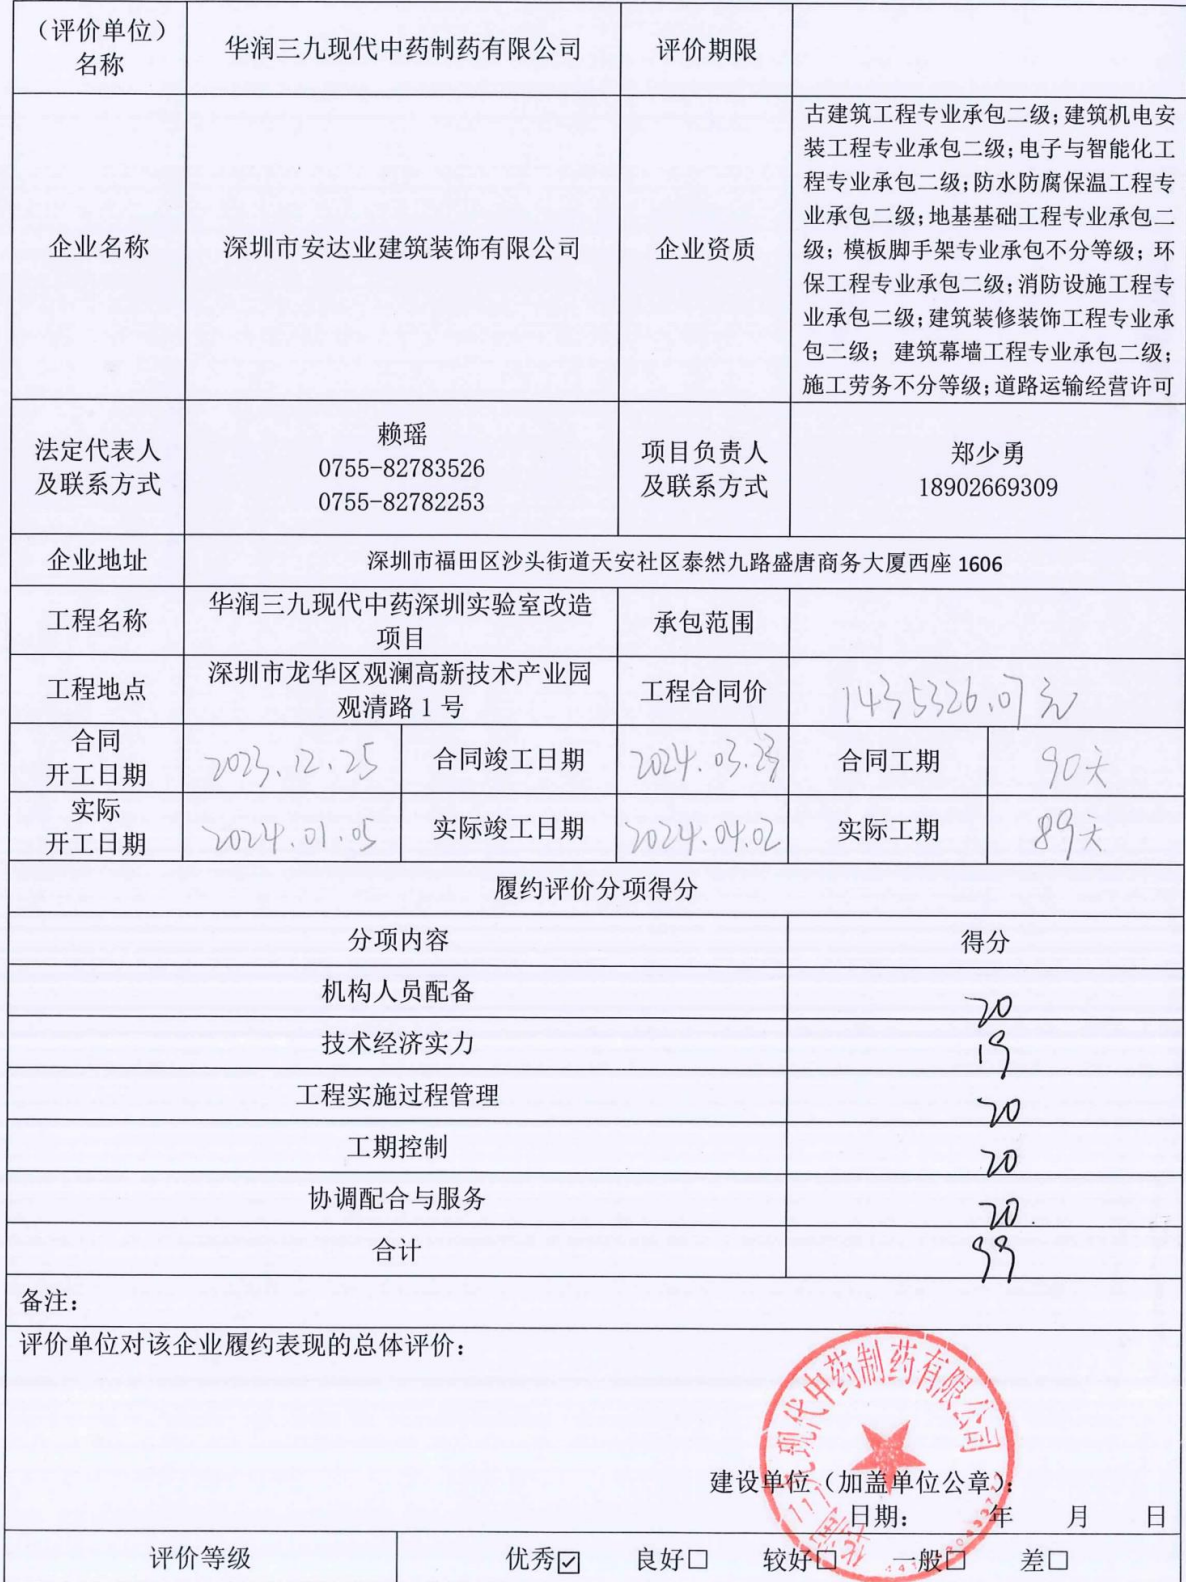 （评价单位）
名称
华润三九现代中药制药有限公司
评价期限
企业名称
深圳市安达业建筑装饰有限公司
企业资质
古建筑工程专业承包二级；建筑机电安
装工程专业承包二级；电子与智能化工
程专业承包二级；防水防腐保温工程专
业承包二级；地基基础工程专业承包二
级；模板脚手架专业承包不分等级；环
保工程专业承包二级；消防设施工程专
业承包二级；建筑装修装饰工程专业承
包二级；建筑幕墙工程专业承包二级；
施工劳务不分等级；道路运输经营许可
法定代表人
及联系方式
赖瑶
0755-82783526
0755-82782253
项目负责人
及联系方式
郑少勇
18902669309
企业地址
深圳市福田区沙头街道天安社区泰然九路盛唐商务大厦西座 1606
工程名称
华润三九现代中药深圳实验室改造
项目
承包范围
工程地点
深圳市龙华区观澜高新技术产业园
观清路 1 号
工程合同价
1435326.07元
合同
开工日期
2023.12.25
合同竣工日期
2024.03.23
合同工期
90天
实际
开工日期
2024.01.05
实际竣工日期
2024.04.02
实际工期
89天
履约评价分项得分
分项内容
得分
机构人员配备
20
技术经济实力
19
工程实施过程管理
20
工期控制
20
协调配合与服务
20.
合计
99
备注：
评价单位对该企业履约表现的总体评价：
华润三九现代中药制药有限公司
建设单位（加盖单位公章）：
日期： 年 月 日
评价等级
优秀☑ 良好□ 较好□ 一般□ 差□